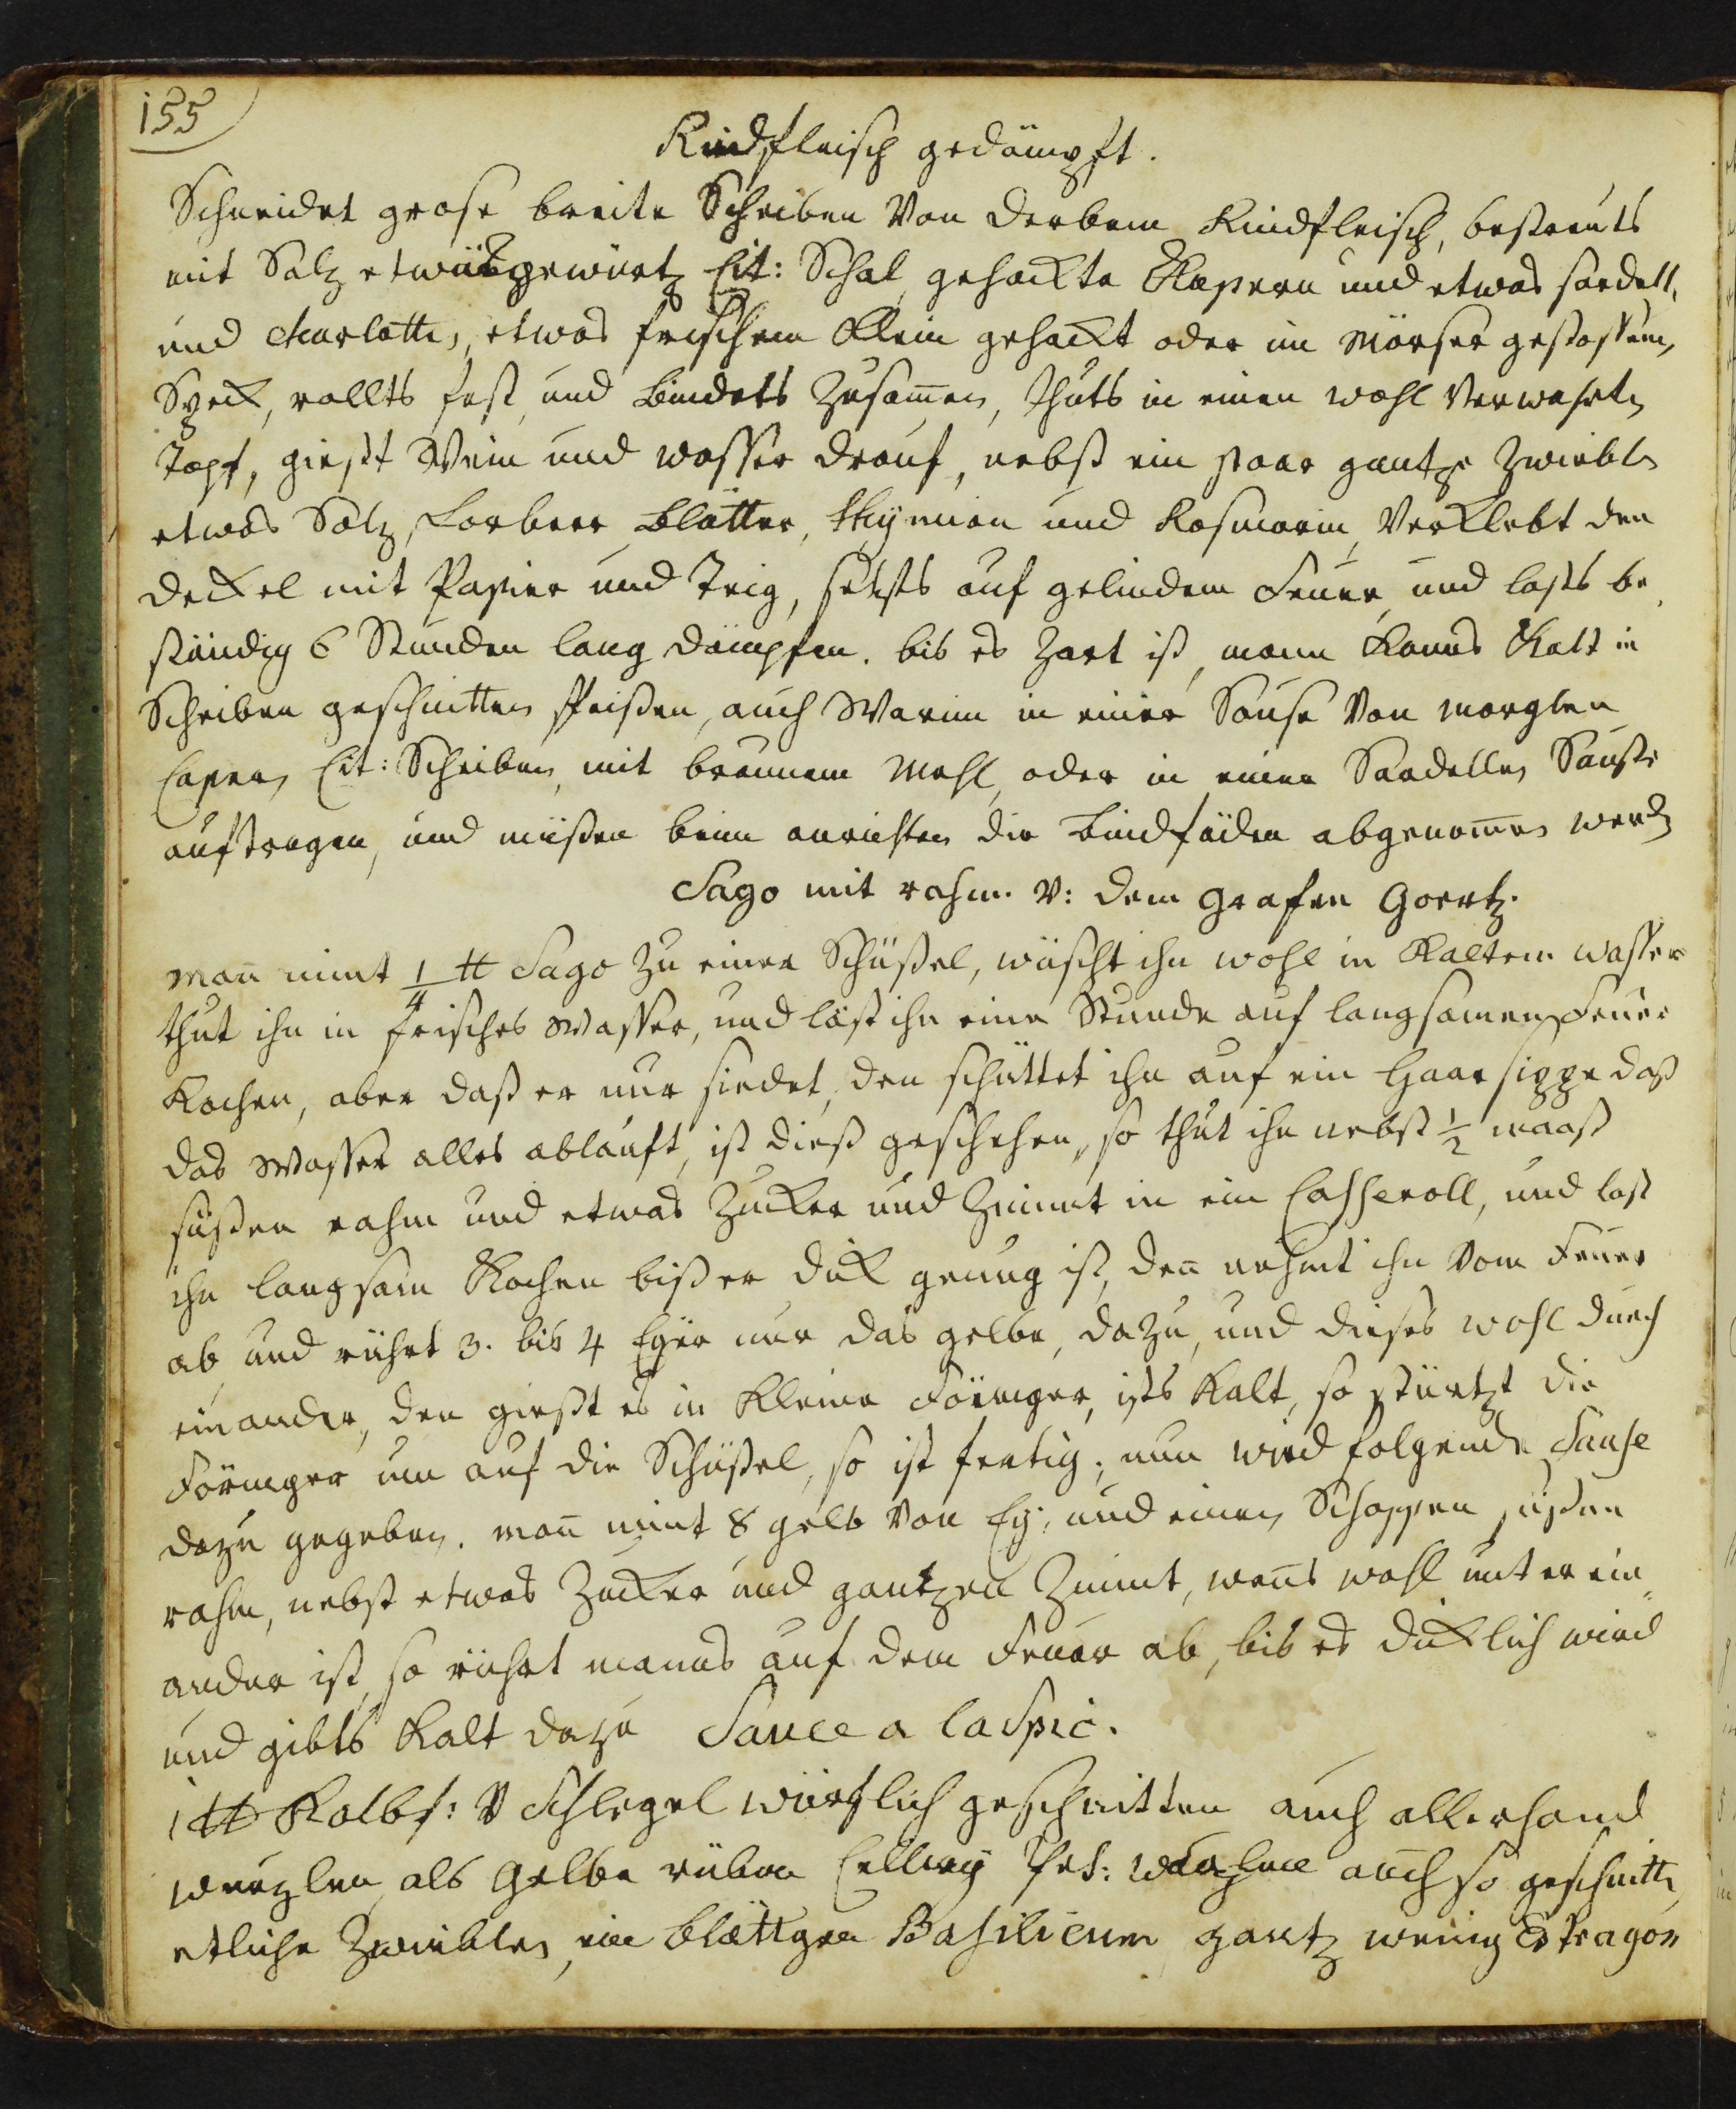 155
Rindfleisch gedämpft.
Schneidet grose breite Scheiben Von derbem Rindfleisch, bestreuts
mit Salz etwas gewürtz Cit: Schal, gehackte Kapern und etwas sardell,
und charlotten, etwas frischem klein gehackt oder im Mörser gestossenen,
Speck, rollts fest, und bindets Zusam̅en, thuts in einen wohl Verwahrten
Topf, giest Wein und wasser drauf, nebst ein paar gantze Zwiebeln
etwas Salz, Lorbeer Blätter, thymian und Rosmarin, Verklebt den
deckel mit Papier und Teig, sezts auf gelindem Feuer, und lasts be
ständig 6 Stunden lang dämpfen. bis es Zart ist, mann kanns kalt in
Scheiben geschnitten speißen, auch Warm in einer Sause Von Morglen
Capern Cit: Scheiben, mit braunem Mehl, oder in einer Sardellen Sauße
auftragen, und müßen beim anrichten die Bindfäden abgenom̅en werden
Sago mit rahm. V: dem Grafen Goertz.
man̅ nimt 1/4 ℔ Sago zu einer Schüßel, wäscht ihn wohl in kaltem wasser
thut ihn in frisches Wasser, und läst ihn eine Stunde auf langsamen Feuer
kochen, aber daß er nur siedet, den schüttet ihn auf ein Haar sippe daß
das Wasser alles ablauft, ist dieß geschehen, so thut ihn nebst 1/2 maaß
süßen rahm und etwas Zucker und Zimmt in ein Casseroll, und last
ihn langsam kochen biß er dick genug ist, den̅ nehmt ihn Vom Feuer
ab, und rührt 3. bis 4 Eyer nur das gelbe, dazu, und dieses wohl durch
einander, den giest es in kleine Förmger, ists kalt, so stürtzt die
Förmger um auf die Schüßel, so ist fertig, nun wird folgende Sause
dazu gegeben. man̅ nimt 8 gelb Von Ey, und einen Schoppen süßen
rahm, nebst etwas Zucker und gantzen Zimmt, wan̅s wohl unter ein
ander ist, so rührt manns auf dem Feuer ab, bis es dicklich wird
und gibts kalt dazu Sauce a laspic.
1 ℔ Kalbf: V Schlegel würflich geschnitten auch allerhand
wurzlen als Gelbe rüben Cellery Pet: wurzlen auch so geschnitten
etliche Zwiebles, ein blättgen Basilicum gantz wenig Estragon